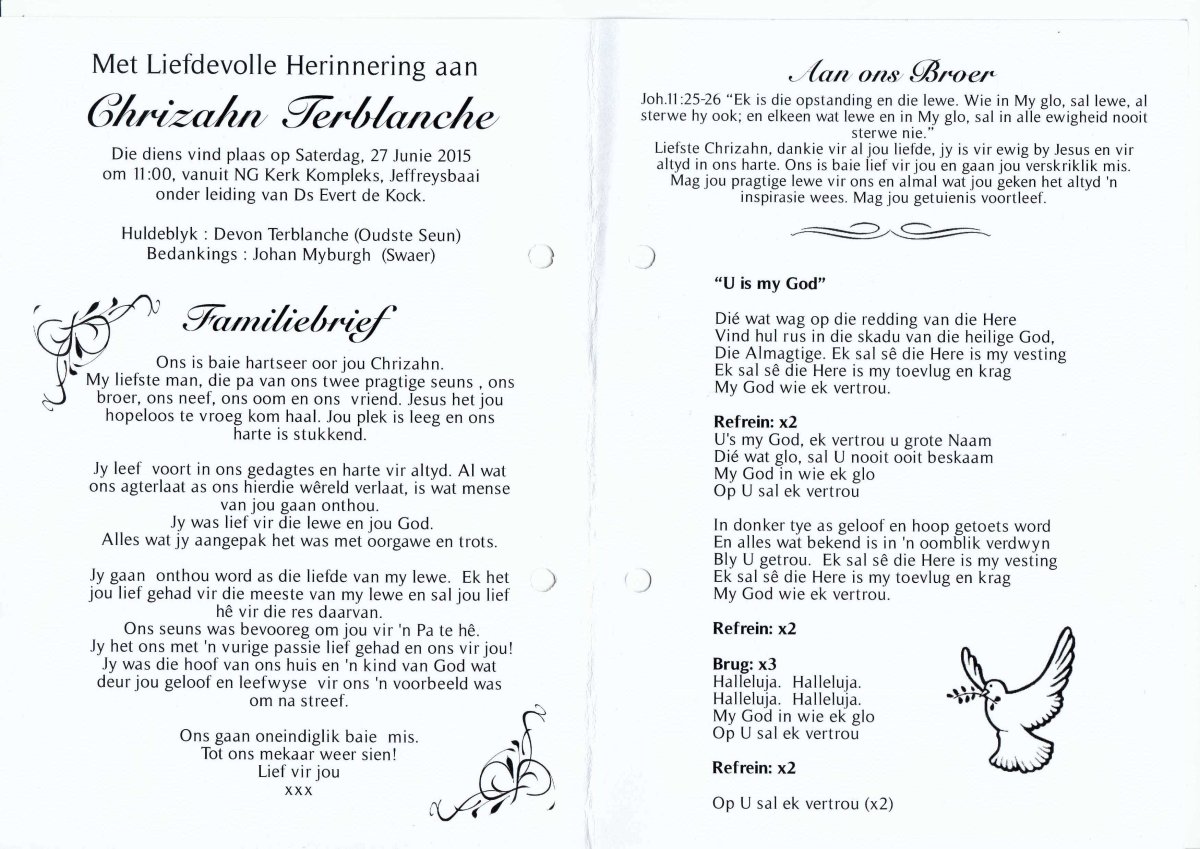 Met Liefdevolle Herinnering aan
Chrizahn Terblanche
Die diens vind plaas op Saterdag, 27 Junie 2015
om 11:00, vanuit NG Kerk Kompleks, Jeffreysbaai
onder leiding van Ds Evert de Kock.
Huldeblyk : Devon Terblanche (Oudste Seun)
Bedankings : Johan Myburgh (Swaer)
Familiebrief
Ons is baie hartseer oor jou Chrizahn.
My liefste man, die pa van ons twee pragtige seuns , ons
broer, ons neef, ons oom en ons vriend. Jesus het jou
hopeloos te vroeg kom haal. Jou plek is leeg en ons
harte is stukkend.
Jy leef voort in ons gedagtes en harte vir altyd. Al wat
ons agterlaat as ons hierdie wêreld verlaat, is wat mense
van jou gaan onthou.
Jy was lief vir die lewe en jou God.
Alles wat jy aangepak het was met oorgawe en trots.
Jy gaan onthou word as die liefde van my lewe. Ek het
jou lief gehad vir die meeste van my lewe en sal jou lief
hê vir die res daarvan.
Ons seuns was bevooreg om jou vir 'n Pa te hê.
Jy het ons met 'n vurige passie lief gehad en ons vir jou!
Jy was die hoof van ons huis en 'n kind van God wat
deur jou geloof en leefwyse vir ons 'n voorbeeld was
om na streef.
Ons gaan oneindiglik baie mis.
Tot ons mekaar weer sien!
Lief vir jou
xxx
Aan ons Broer
Joh.11:25-26 “Ek is die opstanding en die lewe. Wie in My glo, sal lewe, al
sterwe hy ook; en elkeen wat lewe en in My glo, sal in alle ewigheid nooit
sterwe nie.”
Liefste Chrizahn, dankie vir al jou liefde, jy is vir ewig by Jesus en vir
altyd in ons harte. Ons is baie lief vir jou en gaan jou verskriklik mis.
Mag jou pragtige lewe vir ons en almal wat jou geken het altyd 'n
inspirasie wees. Mag jou getuienis voortleef.
“U is my God”
Dié wat wag op die redding van die Here
Vind hul rus in die skadu van die heilige God,
Die Almagtige. Ek sal sê die Here is my vesting
Ek sal sê die Here is my toevlug en krag
My God wie ek vertrou.
Refrein: x2
U's my God, ek vertrou u grote Naam
Dié wat glo, sal U nooit ooit beskaam
My God in wie ek glo
Op U sal ek vertrou
In donker tye as geloof en hoop getoets word
En alles wat bekend is in 'n oomblik verdwyn
Bly U getrou. Ek sal sê die Here is my vesting
Ek sal sê die Here is my toevlug en krag
My God wie ek vertrou.
Refrein: x2
Brug: x3
Halleluja. Halleluja.
Halleluja. Halleluja.
My God in wie ek glo
Op U sal ek vertrou
Refrein: x2
Op U sal ek vertrou (x2)